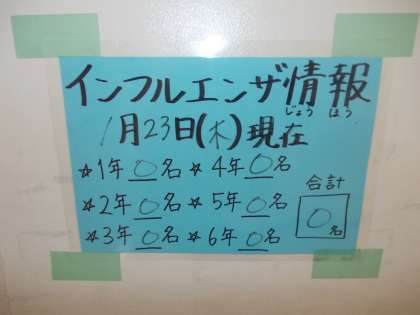 インフルエンザ情報
じょう ほう
1月23日(木)現在
☆1年 0名 ☆4年 0名
☆2年 0名 ☆5年 0名
☆3年 0名 ☆6年 0名
合計
0名